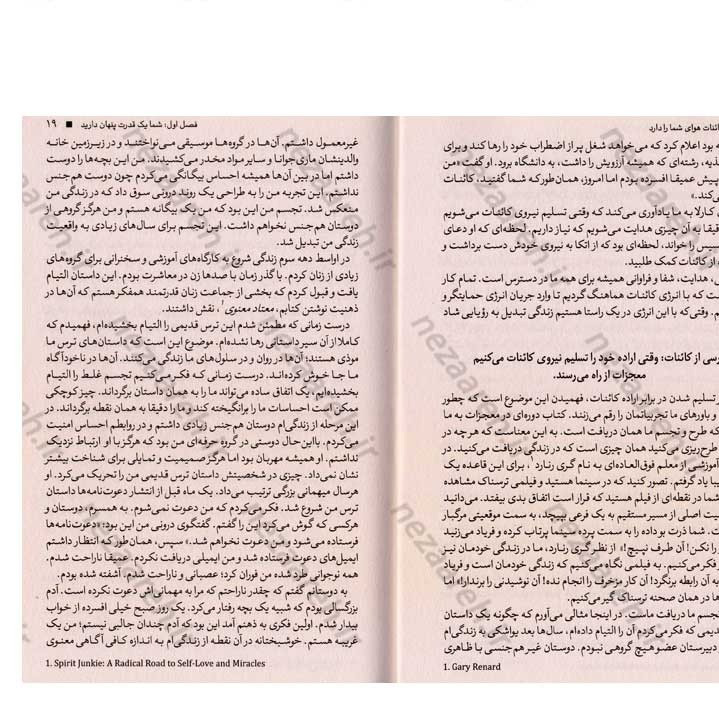 ئنات هوای شما را دارد
ه بود اعلام کرد که می‌خواهد شغل پر از اضطراب خود را رها کند و برای
ذیه، رشته‌ای که همیشه آرزویش را داشت، به دانشگاه برود. او گفت «من
پیش عمیقا افسرده بودم اما امروز، همان‌طور که شما گفتید، کائنات
ی‌کند.»
کارلا به ما یادآوری می‌کند که وقتی تسلیم نیروی کائنات می‌شویم
قیقا به آن چیزی هدایت می‌شویم که نیاز داریم. لحظه‌ای که او دعای
سیس را خواند، لحظه‌ای بود که از اتکا به نیروی خودش دست برداشت و
ه از کائنات کمک طلبید.
ی، هدایت، شفا و فراوانی همیشه برای همه ما در دسترس است. تمام کار
ت که با انرژی کائنات هماهنگ گردیم تا وارد جریان انرژی حمایتگر و
م. وقتی که با این انرژی در یک راستا هستیم زندگی تبدیل به رؤیایی شاد
رسی از کائنات: وقتی اراده خود را تسلیم نیروی کائنات می‌کنیم
معجزات از راه می‌رسند.
تسلیم شدن در برابر اراده کائنات، فهمیدن این موضوع است که چطور
و باورهای ما تجربیاتمان را رقم می‌زنند. کتاب دوره‌ای در معجزات به ما
که طرح و تجسم ما همان دریافت است. به این معناست که هر چه در
طرح‌ریزی می‌کنید همان چیزی است که در زندگی دریافت می‌کنید. در
آموزشی از معلم فوق‌العاده‌ای به نام گری رنارد۱، برای این قاعده یک
یبا یاد گرفتم. تصور کنید که در سینما هستید و فیلمی ترسناک مشاهده
شما در نقطه‌ای از فیلم هستید که قرار است اتفاق بدی بیفتد. می‌دانید
یت اصلی از مسیر مستقیم به یک فرعی بپیچد، به سمت موقعیتی مرگبار
ت. شما ذرت بوداده را به سمت پرده سینما پرتاب کرده و فریاد می‌زنید
را نکن! آن طرف نپیچ!» از نظر گری رنارد، ما در زندگی خودمان نیز
فکر می‌کنیم. به فیلمی نگاه می‌کنیم که زندگی خودمان است و فریاد
به آن رابطه برنگرد! آن کار مزخرف را انجام نده! آن نوشیدنی را برندار!» اما
ها در همان صحنه ترسناک گیر می‌کنیم.
جسم ما دریافت ماست. در اینجا مثالی می‌آورم که چگونه یک داستان
دیمی که فکر می‌کردم آن را التیام داده‌ام، سال‌ها بعد یواشکی به زندگی‌ام
دبیرستان عضو هیچ گروهی نبودم. دوستان غیر هم‌جنسی با ظاهری
1. Gary Renard
فصل اول: شما یک قدرت پنهان دارید ■ ۱۹
غیرمعمول داشتم. آن‌ها در گروه‌ها موسیقی می‌نواختند و در زیرزمین خانه
والدینشان ماری‌جوانا و سایر مواد مخدر می‌کشیدند. من این بچه‌ها را دوست
داشتم اما در بین آن‌ها همیشه احساس بیگانگی می‌کردم چون دوست هم‌جنس
نداشتم. این تجربه من را به طراحی یک روند درونی سوق داد که در زندگی من
منعکس شد. تجسم من این بود که من یک بیگانه هستم و من هرگز گروهی از
دوستان هم‌جنس نخواهم داشت. این تجسم برای سال‌های زیادی به واقعیت
زندگی من تبدیل شد.
در اواسط دهه سوم زندگی شروع به کارگاه‌های آموزشی و سخنرانی برای گروه‌های
زیادی از زنان کردم. با گذر زمان با صدها زن در معاشرت بودم. این داستان التیام
یافت و قبول کردم که بخشی از جماعت زنان قدرتمند همفکر هستم که آن‌ها در
ذهنیت نوشتن کتابم، معتاد معنوی۱، نقش داشتند.
درست زمانی که مطمئن شدم این ترس قدیمی را التیام بخشیده‌ام، فهمیدم که
کاملا از آن سیر داستانی رها نشده‌ام. موضوع این است که داستان‌های ترس ما
موذی هستند؛ آن‌ها در روان و در سلول‌های ما زندگی می‌کنند. آن‌ها در ناخودآگاه
ما جا خوش کرده‌اند. درست زمانی که فکر می‌کنیم تجسم غلط را التیام
بخشیده‌ایم، یک اتفاق ساده می‌تواند ما را به همان داستان برگرداند. چیز کوچکی
ممکن است احساسات ما را برانگیخته کند و ما را دقیقا به همان نقطه برگرداند. در
این مرحله از زندگی‌ام دوستان هم‌جنس زیادی داشتم و در روابطم احساس امنیت
می‌کردم. بااین‌حال دوستی در گروه حرفه‌ای من بود که هرگز با او ارتباط نزدیک
نداشتم. او همیشه مهربان بود اما هرگز صمیمیت و تمایلی برای شناخت بیشتر
نشان نمی‌داد. چیزی در شخصیتش داستان ترس قدیمی من را تحریک می‌کرد. او
هرسال میهمانی بزرگی ترتیب می‌داد. یک ماه قبل از انتشار دعوت‌نامه‌ها داستان
ترس من شروع شد. فکر می‌کردم که من دعوت نمی‌شوم. به همسرم، دوستان و
هرکسی که گوش می‌کرد این را گفتم. گفتگوی درونی من این بود: «دعوت‌نامه‌ها
فرستاده می‌شود و من دعوت نخواهم شد.» سپس، همان‌طور که انتظار داشتم
ایمیل‌های دعوت فرستاده شد و من ایمیلی دریافت نکردم. عمیقا ناراحت شدم.
همه نوجوانی طرد شده من فوران کرد؛ عصبانی و ناراحت شدم. آشفته شده بودم.
به دوستانم گفتم که چقدر ناراحتم که مرا به مهمانی اش دعوت نکرده است. آدم
بزرگسالی بودم که شبیه یک بچه رفتار می‌کرد. یک روز صبح خیلی افسرده از خواب
بیدار شدم. اولین فکری به ذهنم آمد این بود که آدم چندان جالبی نیستم؛ من یک
غریبه هستم. خوشبختانه در آن نقطه از زندگی‌ام به اندازه کافی آگاهی معنوی
1. Spirit Junkie: A Radical Road to Self-Love and Miracles
nezaarah.ir